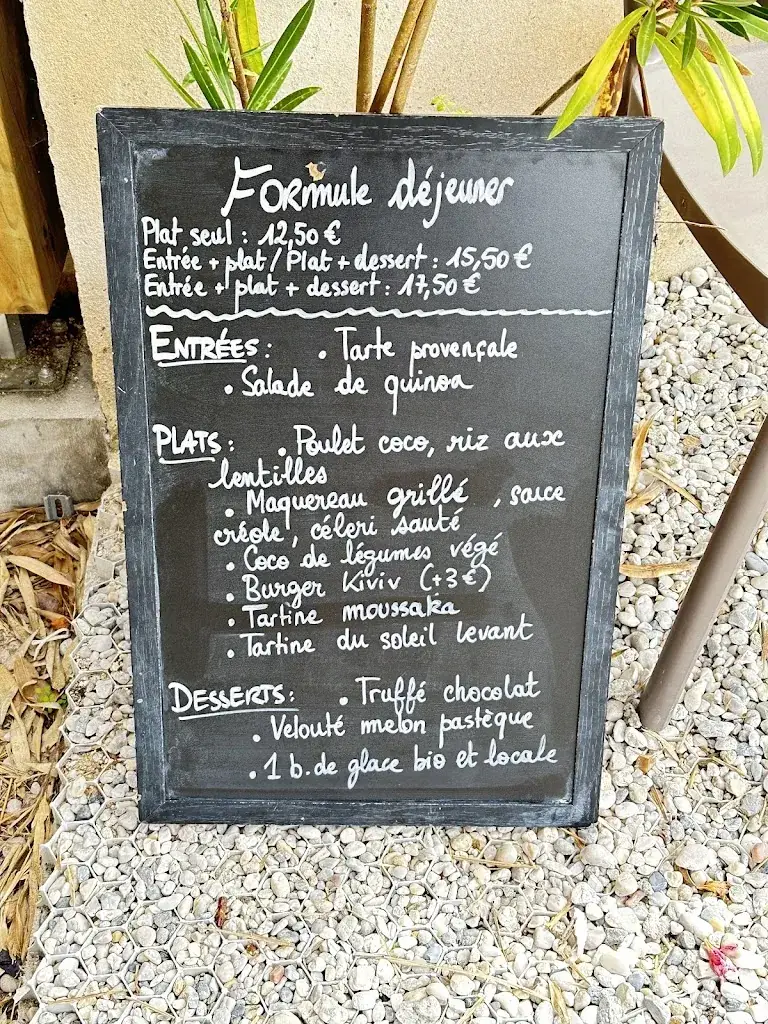 Formule déjeuner
Plat seul : 12,50 €
Entrée + plat / Plat + dessert : 15,50 €
Entrée + plat + dessert : 17,50 €
ENTRÉES : • Tarte provençale
• Salade de quinoa
PLATS : • Poulet coco, riz aux
lentilles
• Maquereau grillé , sauce
créole, céleri sauté
• Coco de légumes végé
• Burger Kiviv (+3 €)
• Tartine moussaka
• Tartine du soleil levant
DESSERTS : • Truffé chocolat
• Velouté melon pastèque
• 1 b. de glace bio et locale